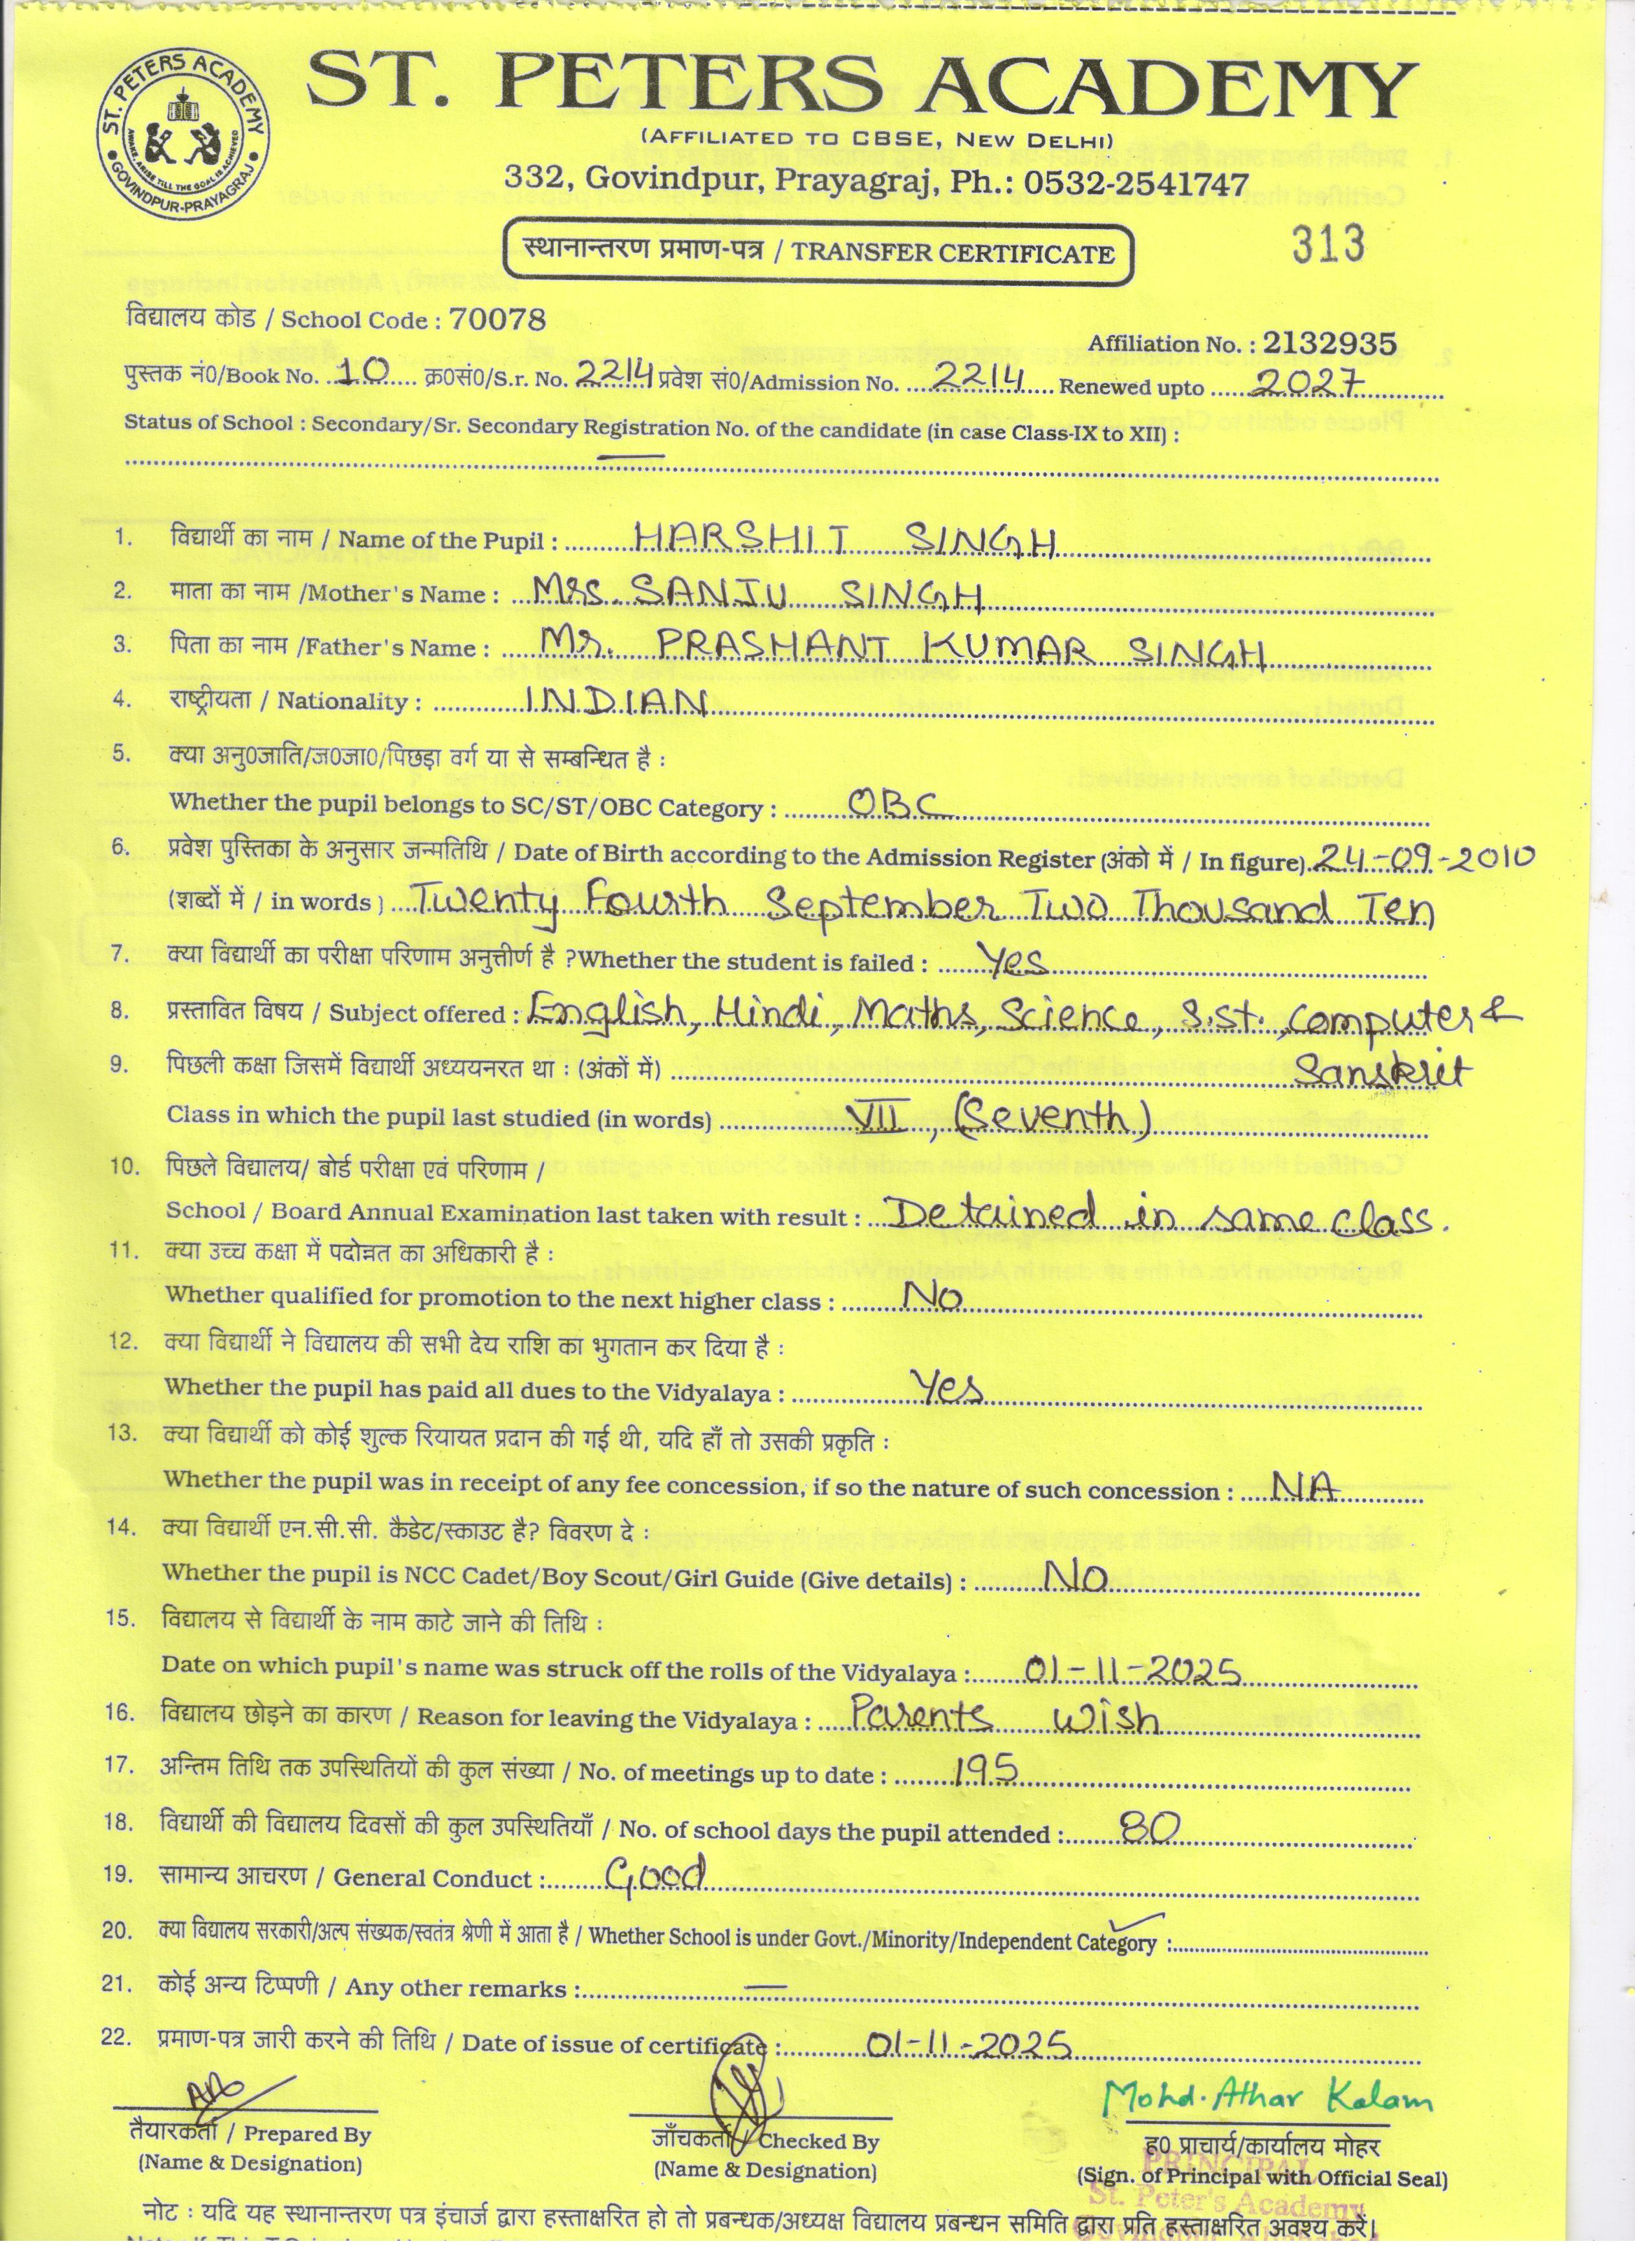 ST. PETERS ACADEMY
AWAKE, ARISE TILL THE GOAL IS ACHIEVED
GOVINDPUR-PRAYAGRAJ
ST. PETERS ACADEMY
(AFFILIATED TO CBSE, NEW DELHI)
332, Govindpur, Prayagraj, Ph.: 0532-2541747
स्थानान्तरण प्रमाण-पत्र / TRANSFER CERTIFICATE
313
विद्यालय कोड / School Code : 70078
Affiliation No. : 2132935
पुस्तक नं0/Book No. 10 क्र0सं0/S.r. No. 2214 प्रवेश सं0/Admission No. 2214 Renewed upto 2027
Status of School : Secondary/Sr. Secondary Registration No. of the candidate (in case Class-IX to XII) :
1. विद्यार्थी का नाम / Name of the Pupil : HARSHIT SINGH
2. माता का नाम /Mother's Name : Mrs. SANJU SINGH
3. पिता का नाम /Father's Name : Mr. PRASHANT KUMAR SINGH
4. राष्ट्रीयता / Nationality : INDIAN
5. क्या अनु0जाति/ज0जा0/पिछड़ा वर्ग या से सम्बन्धित है :
Whether the pupil belongs to SC/ST/OBC Category : OBC
6. प्रवेश पुस्तिका के अनुसार जन्मतिथि / Date of Birth according to the Admission Register (अंको में / In figure) 24-09-2010
(शब्दों में / in words ) Twenty Fourth September Two Thousand Ten
7. क्या विद्यार्थी का परीक्षा परिणाम अनुत्तीर्ण है ?Whether the student is failed : Yes
8. प्रस्तावित विषय / Subject offered : English, Hindi, Maths, Science, S.st., Computer &
Sanskrit
9. पिछली कक्षा जिसमें विद्यार्थी अध्ययनरत था : (अंकों में)
Class in which the pupil last studied (in words) VII, (Seventh)
10. पिछले विद्यालय/ बोर्ड परीक्षा एवं परिणाम /
School / Board Annual Examination last taken with result : Detained in same class.
11. क्या उच्च कक्षा में पदोन्नत का अधिकारी है :
Whether qualified for promotion to the next higher class : No
12. क्या विद्यार्थी ने विद्यालय की सभी देय राशि का भुगतान कर दिया है :
Whether the pupil has paid all dues to the Vidyalaya : Yes
13. क्या विद्यार्थी को कोई शुल्क रियायत प्रदान की गई थी, यदि हाँ तो उसकी प्रकृति :
Whether the pupil was in receipt of any fee concession, if so the nature of such concession : NA
14. क्या विद्यार्थी एन.सी.सी. कैडेट/स्काउट है? विवरण दे :
Whether the pupil is NCC Cadet/Boy Scout/Girl Guide (Give details) : No
15. विद्यालय से विद्यार्थी के नाम काटे जाने की तिथि :
Date on which pupil's name was struck off the rolls of the Vidyalaya : 01-11-2025
16. विद्यालय छोड़ने का कारण / Reason for leaving the Vidyalaya : Parents wish
17. अन्तिम तिथि तक उपस्थितियों की कुल संख्या / No. of meetings up to date : 195
18. विद्यार्थी की विद्यालय दिवसों की कुल उपस्थितियाँ / No. of school days the pupil attended : 80
19. सामान्य आचरण / General Conduct : Good
20. क्या विद्यालय सरकारी/अल्प संख्यक/स्वतंत्र श्रेणी में आता है / Whether School is under Govt./Minority/Independent Category :
21. कोई अन्य टिप्पणी / Any other remarks : —
22. प्रमाण-पत्र जारी करने की तिथि / Date of issue of certificate : 01-11-2025
Mohd. Athar Kalam
तैयारकर्ता / Prepared By
(Name & Designation)
जाँचकर्ता / Checked By
(Name & Designation)
ह0 प्राचार्य/कार्यालय मोहर
(Sign. of Principal with Official Seal)
PRINCIPAL
St. Peter's Academy
नोट : यदि यह स्थानान्तरण पत्र इंचार्ज द्वारा हस्ताक्षरित हो तो प्रबन्धक/अध्यक्ष विद्यालय प्रबन्धन समिति द्वारा प्रति हस्ताक्षरित अवश्य करें।